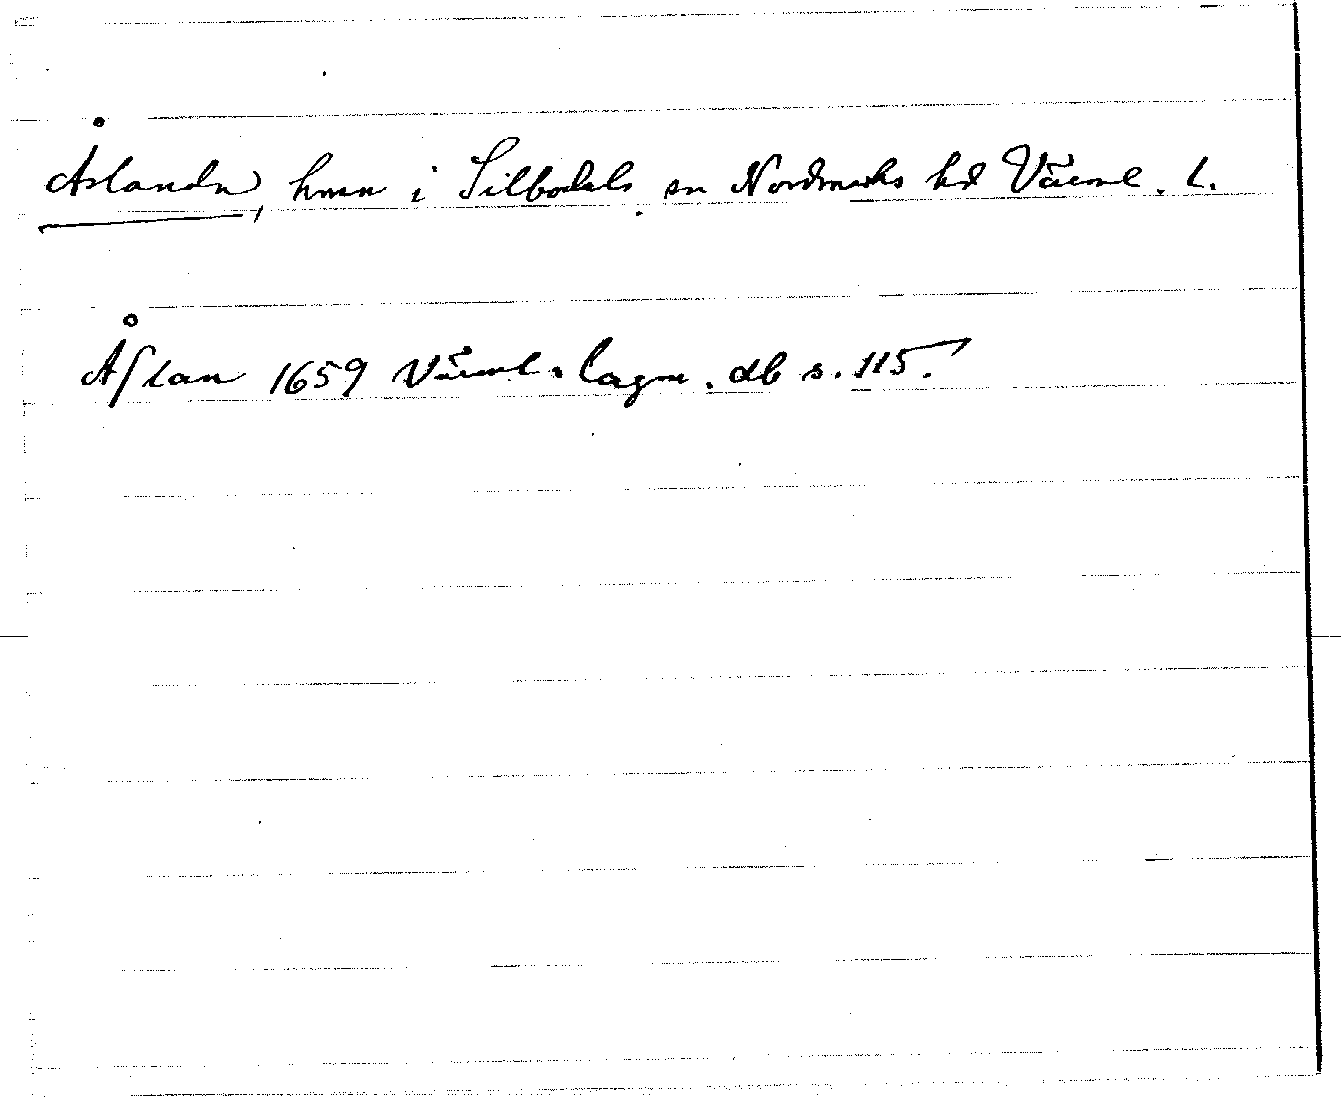 Åslanda, hmn i Silbodals sn Nordmarks hd Värml. l.
Åslan 1659 Värml. lagm. db s. 115.